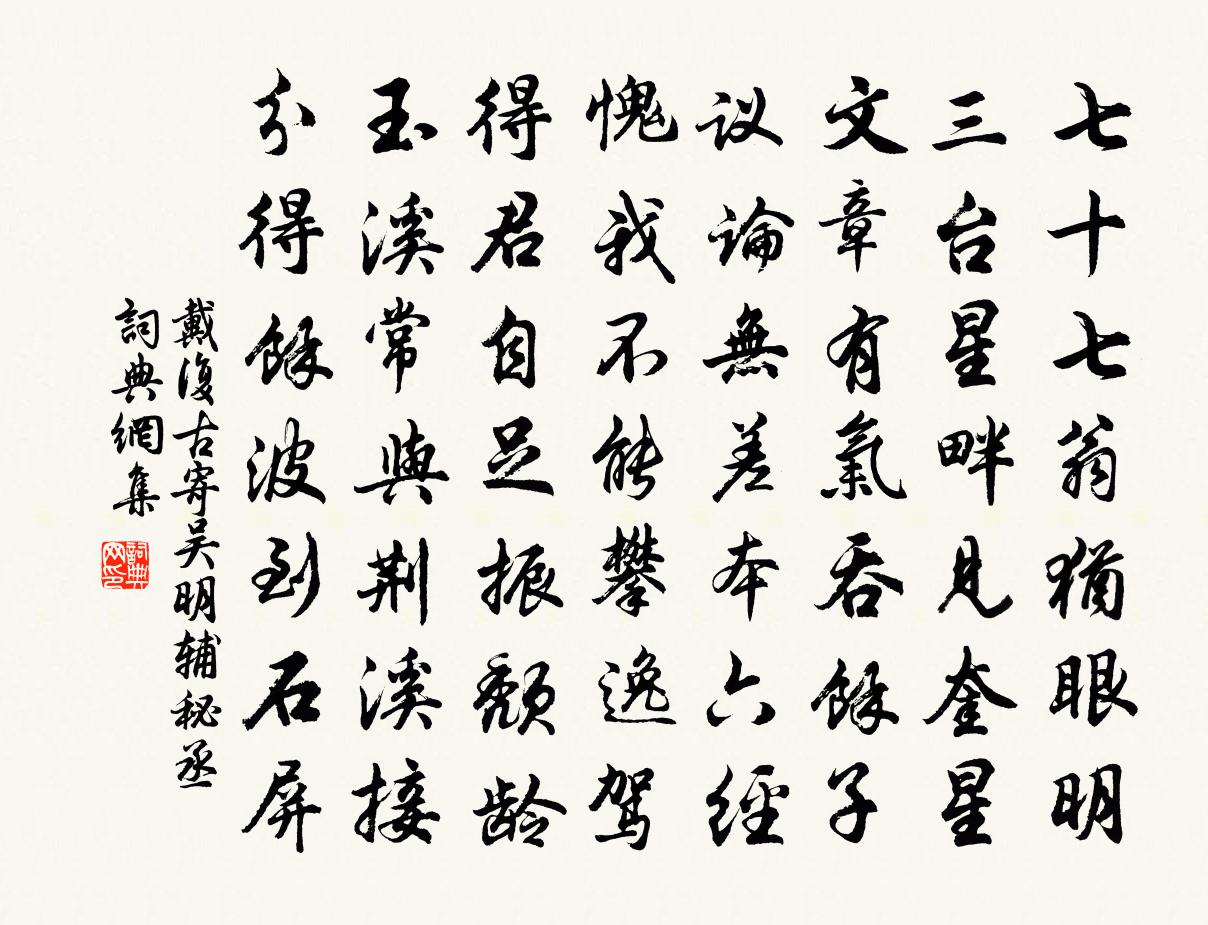 七十七翁猶眼明
三台星畔見奎星
文章有氣吞餘子
议論無差本六經
愧我不能攀逸驾
得君自足振颓龄
玉溪常與荆溪接
分得餘波到石屏
戴復古寄吴明辅秘丞
詞典網集
詞典网印